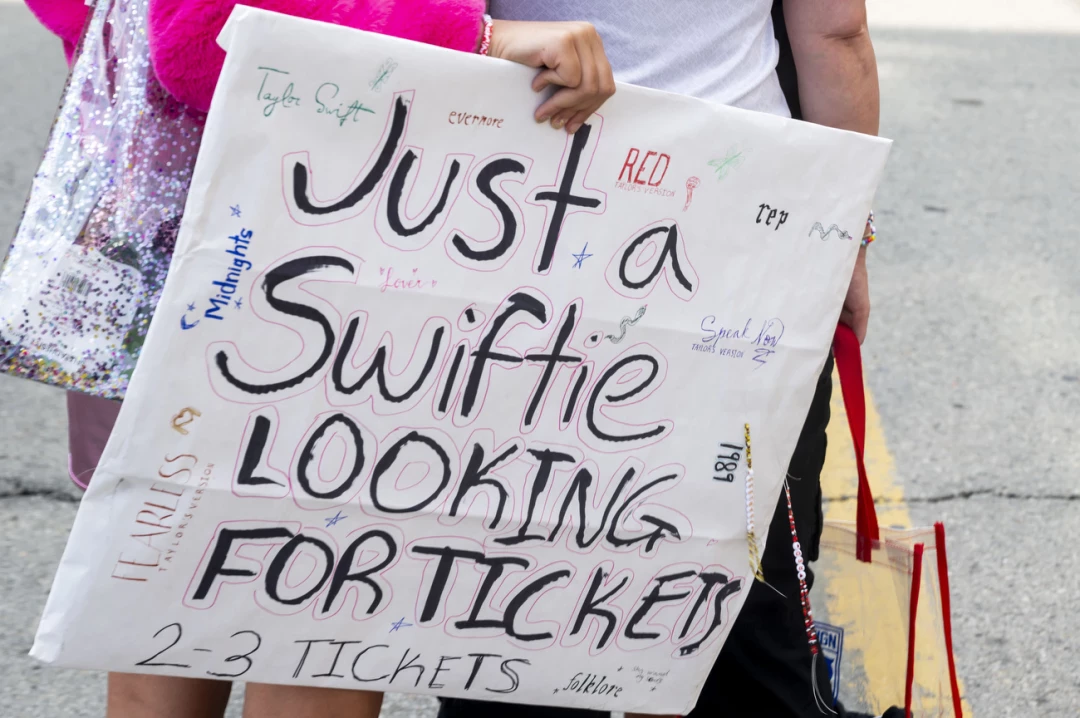 Taylor Swift
evermore
RED
TAYLOR'S VERSION
rep
Just a
Midnights
Lover
Swiftie
Speak Now
TAYLOR'S VERSION
LOOKING
1989
FEARLESS
TAYLOR'S VERSION
FOR TICKETS
2-3 TICKETS
folklore